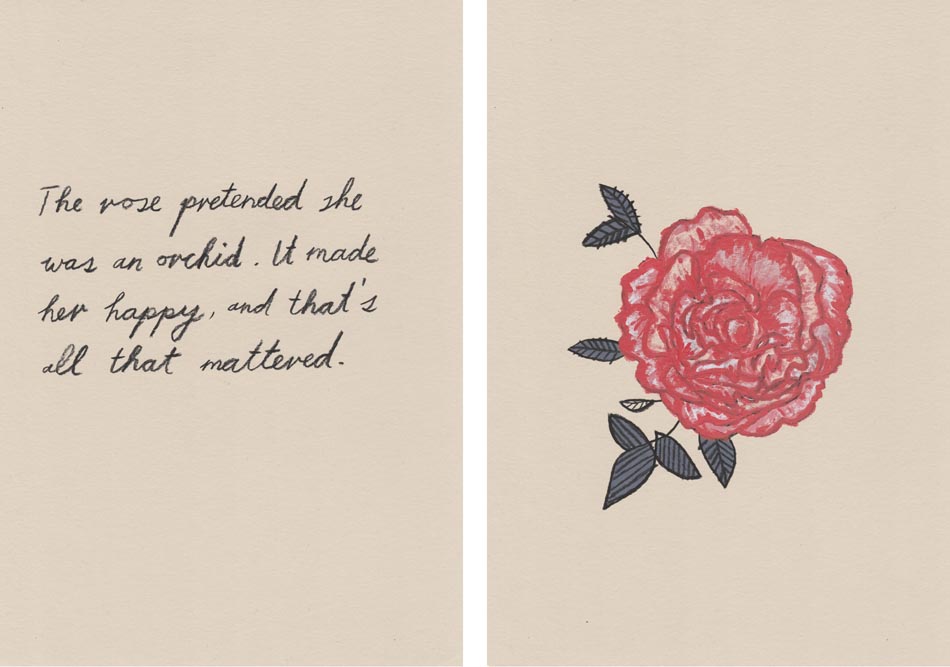 The rose pretended she
was an orchid. It made
her happy, and that's
all that mattered.